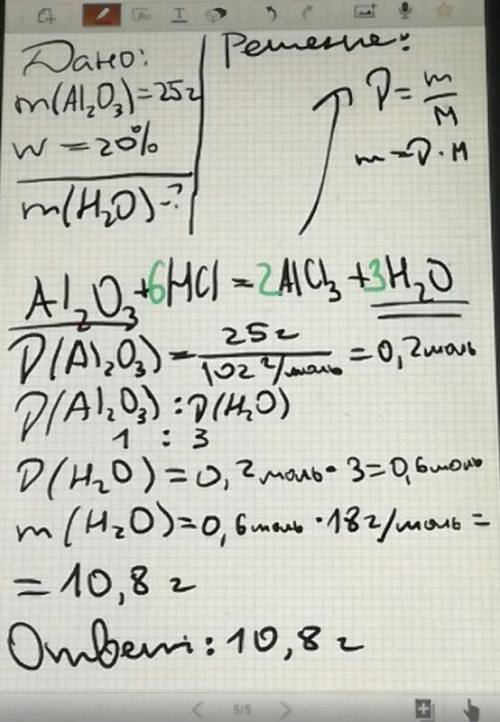 Дано:
m(Al₂O₃)=25г
w=20%
m(H₂O)-?
Решение:
D=m/M
m=D·M
Al₂O₃+6HCl=2AlCl₃+3H₂O
D(Al₂O₃)=25г/102г/моль=0,2моль
D(Al₂O₃):D(H₂O)
1 : 3
D(H₂O)=0,2моль·3=0,6моль
m(H₂O)=0,6моль·18г/моль=
=10,8 г
Ответ:10,8 г
5/5